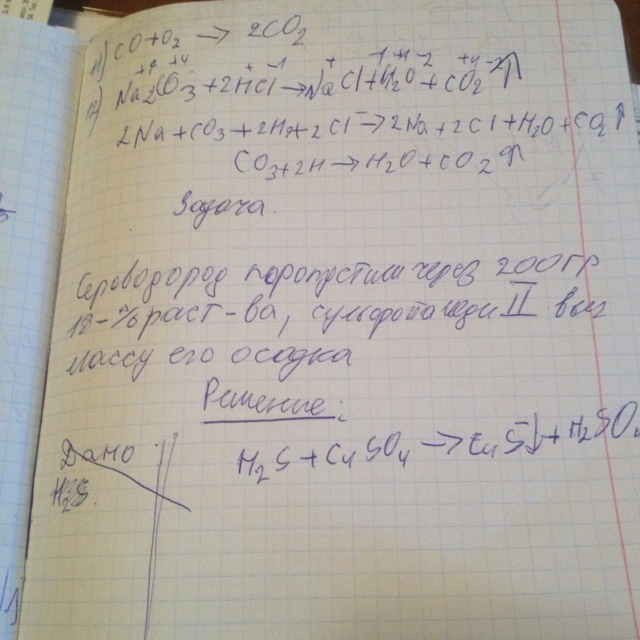 11) CO+O2 → 2CO2
+1 +4 + -1 + -1 +1 -2 +4 -2
12) Na2CO3+2HCl→NaCl+H2O+CO2↑
2Na+CO3+2H+2Cl→2Na+2Cl+H2O+CO2↑
CO3+2H→H2O+CO2↑
Задача.
Сероводород поропустили через 200гр
18-%раст-ва, сульфата меди II выч
массу его осадка
Решение:
Дано
H2S
H2S+CuSO4→CuS↓+H2SO4